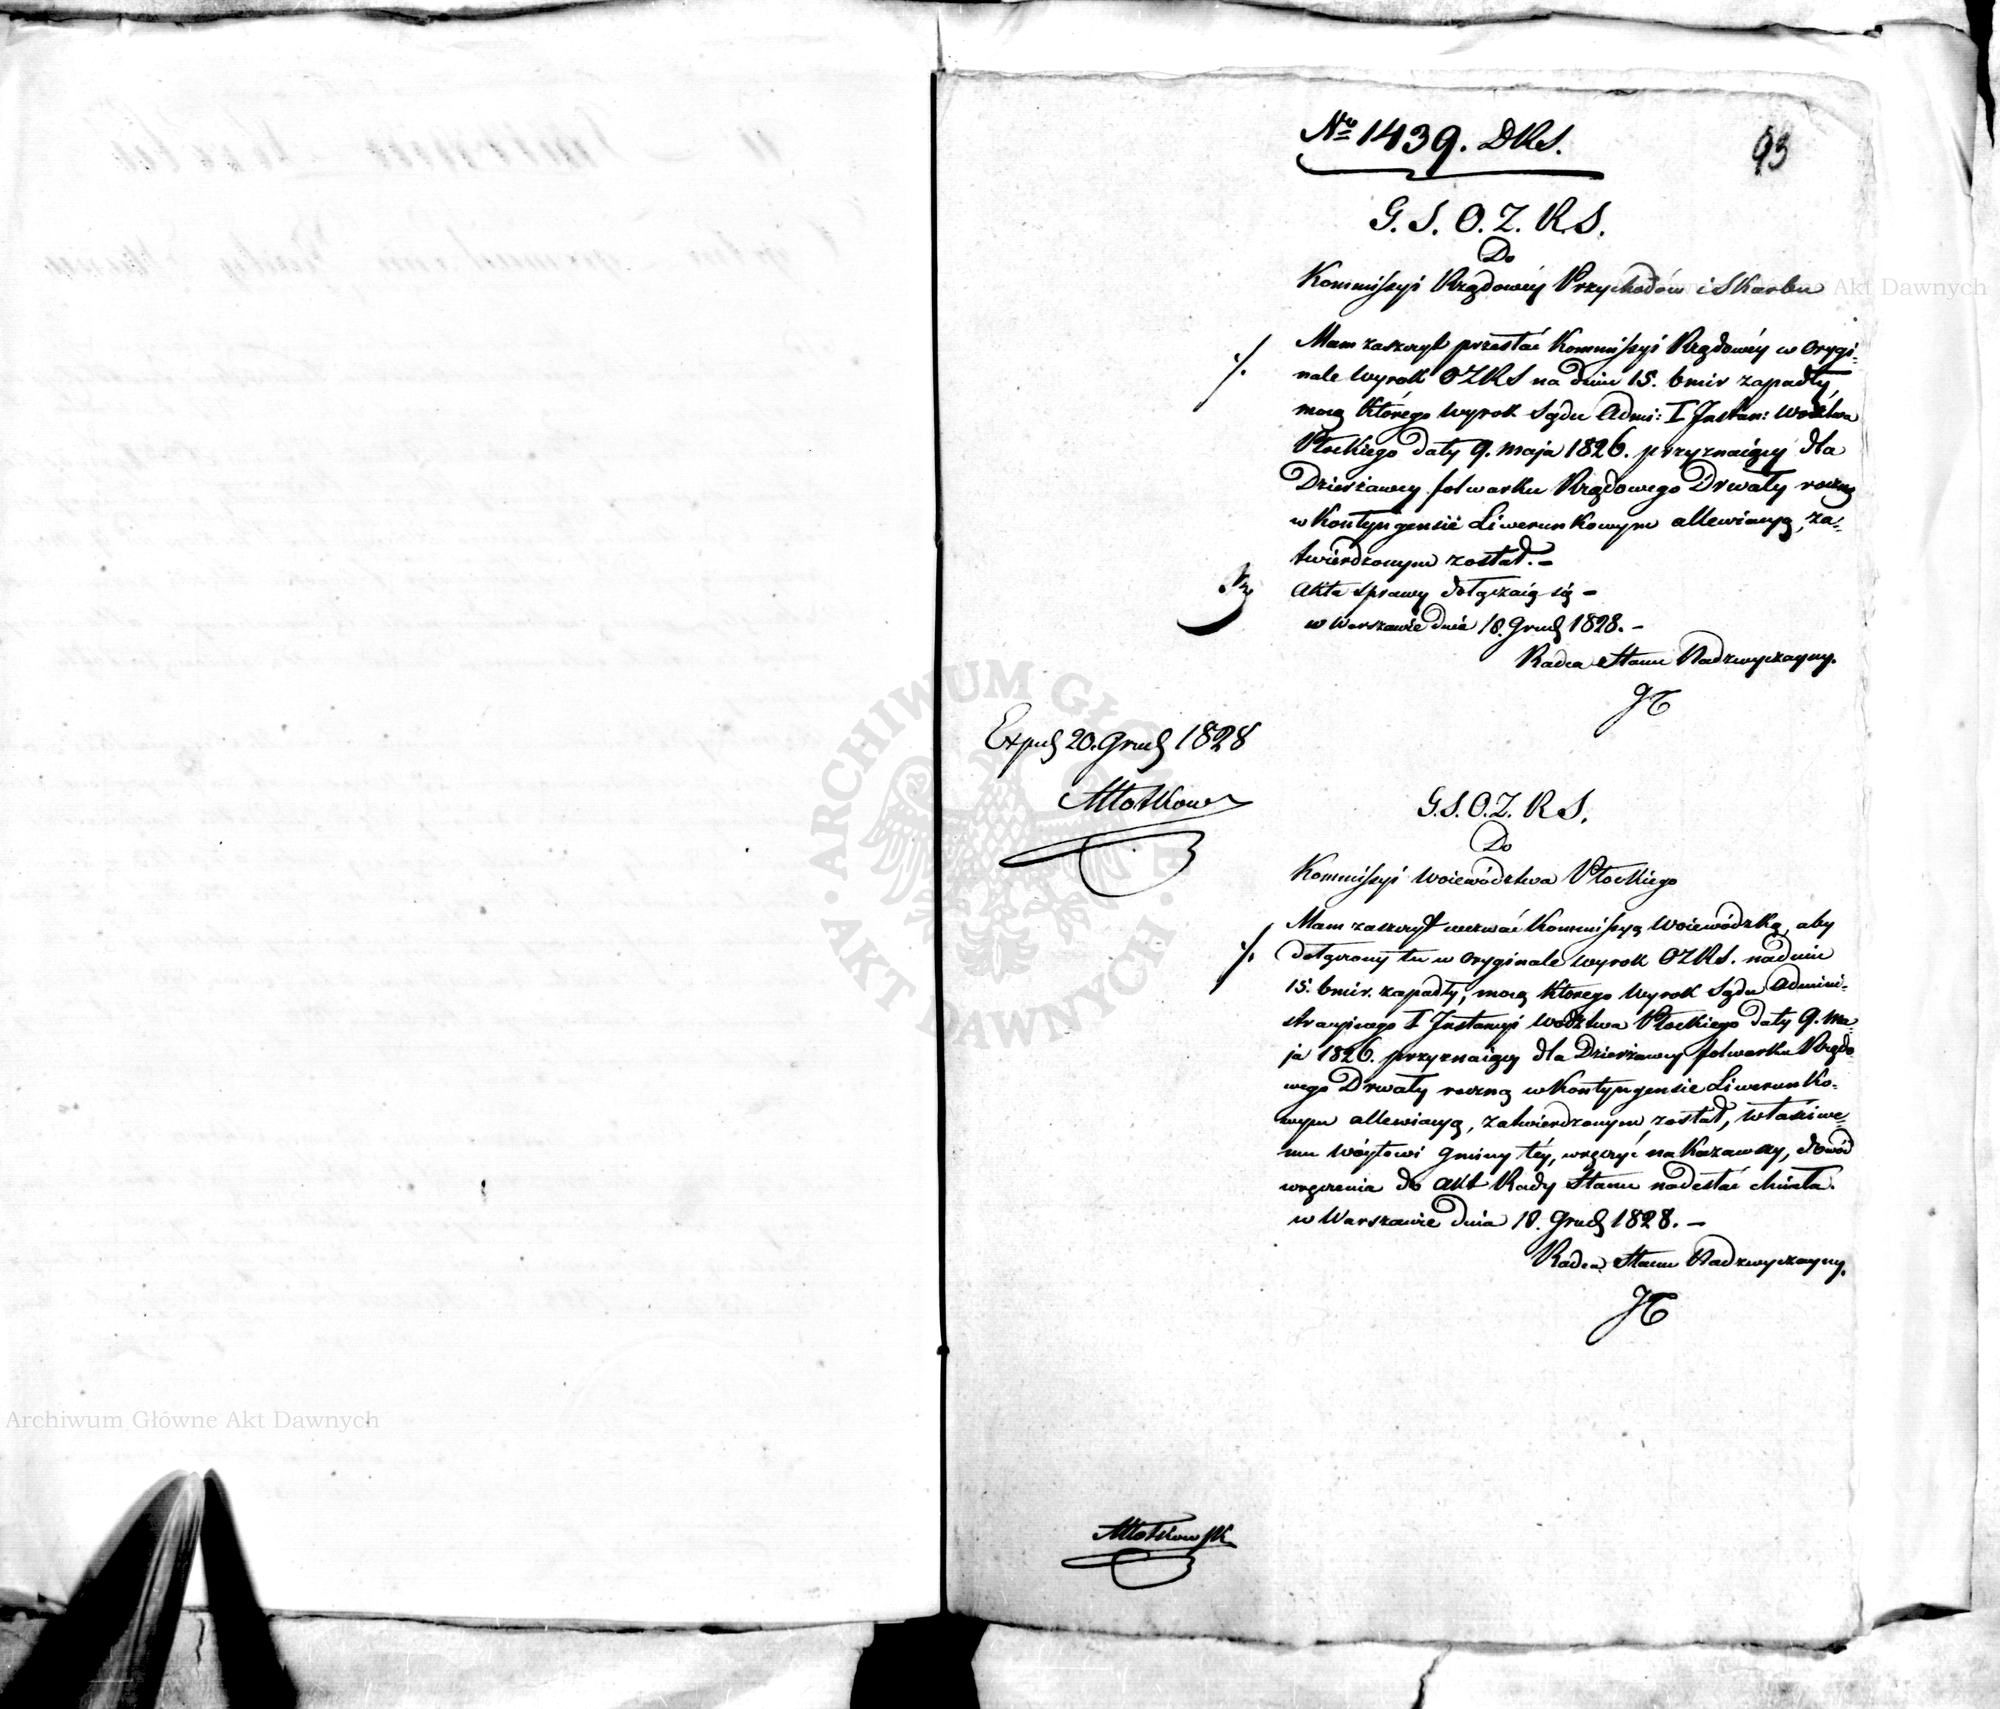 № 1439. DKS.
93
G. S. O. Z. R. S.
Do
Kommissyi Rządowéy Przychodów i Skarbu
Mam zaszczyt przesłać Kommissyi Rządowéy w orygi-
nale wyrok OZRS na dniu 15. bmir zapadły,
mocą którego wyrok Sądu Admi: I Instan: Wodztwa
Płockiego daty 9. maja 1826. przyznaiący dla
Dzierżawcy folwarku Rządowego Drwały roczną
w kontyngensie Liwerunkowym allewiacyą, za-
twierdzonym został. -
Akta sprawy dołączaią się -
w Warszawie dnia 18. Grud 1828. -
Radca Stanu Nadzwyczayny.
Exped 20. Grud 1828
Młotkow
G. S. O. Z. R S.
Do
Kommissyi Województwa Płockiego
Mam zaszczyt wezwać Kommissyą Woiewódzką, aby
dołączony tu w oryginale wyrok OZRS. na dniu
15. bmir. zapadły, mocą którego wyrok Sądu Admini-
stracyinego I Instancyi Wodztwa Płockiego daty 9. ma-
ja 1826. przyznaiący dla Dzierżawcy folwarku Rządo
wego Drwały roczną w kontyngensie Liwerunko-
wym allewiacyą, zatwierdzonym został, właściwe-
mu wóytowi gminy téy, wręczyć nakazawszy, dowód
wręczenia do akt Rady Stanu nadesłać chciała.
w Warszawie dnia 18. Grud 1828. -
Radca Stanu Nadzwyczayny.
Młotkowsk
ARCHIWUM GŁÓWNE AKT DAWNYCH
Archiwum Główne Akt Dawnych